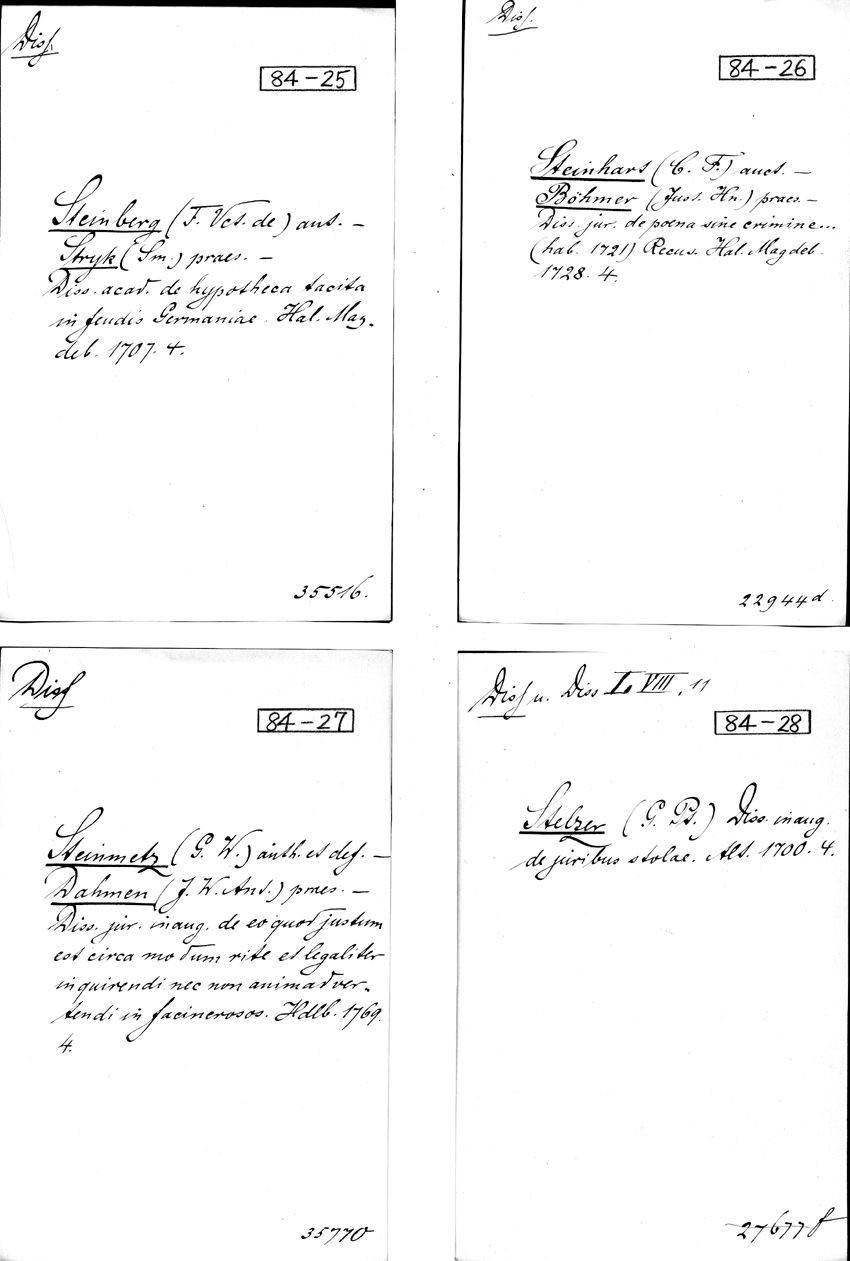 Diss.
84-25
Steinberg (F. Vct. de) aut. —
Stryk (Sm.) praes. —
Diss. acad. de hypotheca tacita
in feudis Germaniae. Hal. Mag-
deb. 1707. 4.
35516.
Diss.
84-26
Steinhart (C. F.) auct. —
Böhmer (Just. Hn.) praes. —
Diss. jur. de poena sine crimine...
(hab. 1721) Recus. Hal. Magdeb.
1728. 4.
22944d.
Diss
84-27
Steinmetz (G. W.) auth. et def. —
Dahmen (J. W. Ant.) praes. —
Diss. jur. inaug. de eo quod justum
est circa modum rite et legaliter
inquirendi nec non animadver-
tendi in facinerosos. Hdlb. 1769.
4.
35770
Diss u. Diss L VIII, 11
84-28
Stelzer (G. Pt.) Diss. inaug.
de juribus stolae. Alt. 1700. 4.
27677f